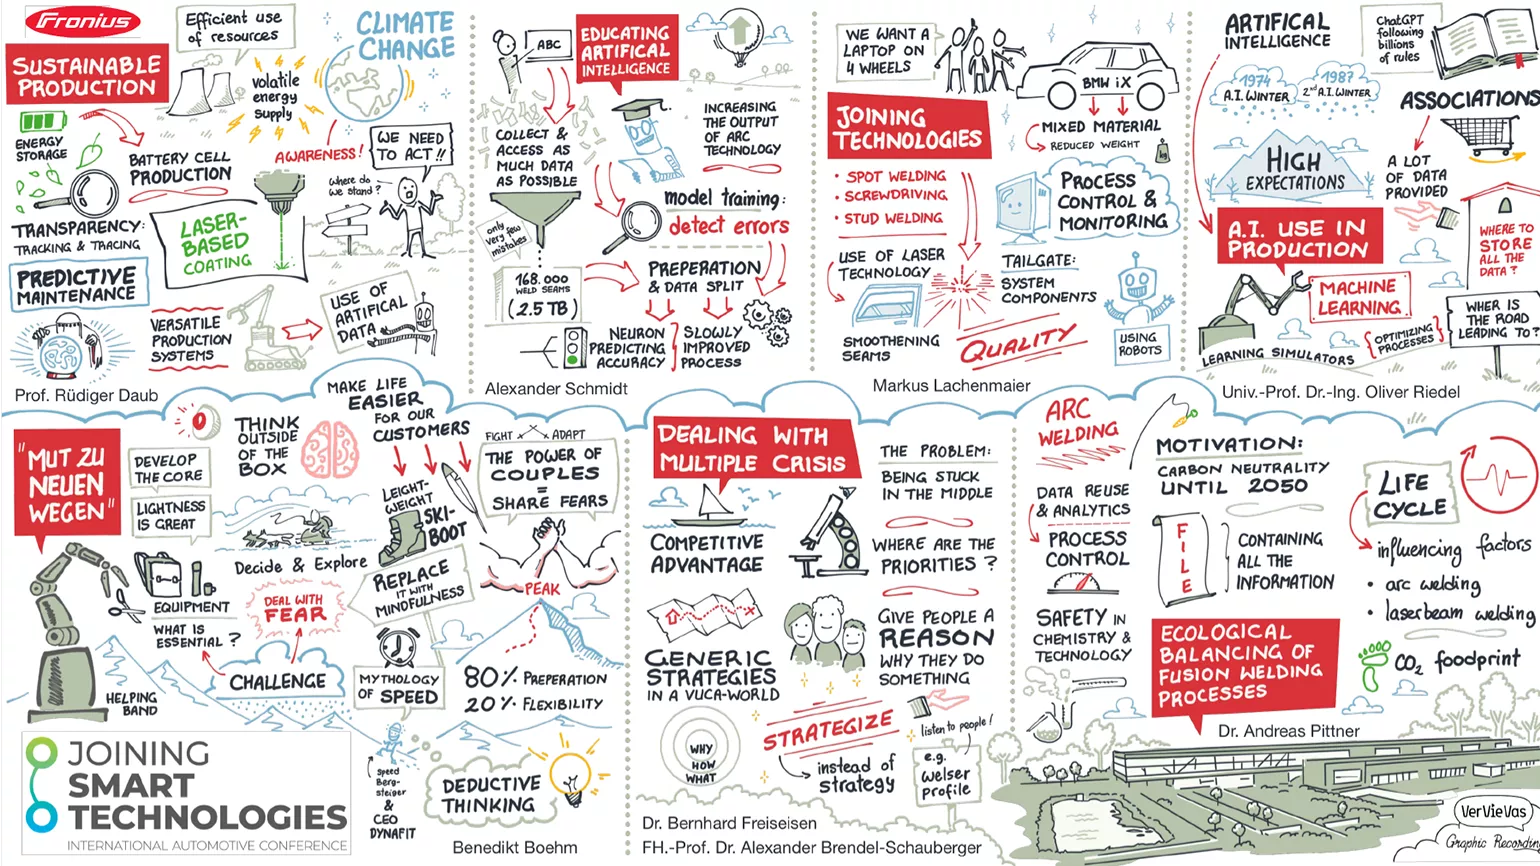 Fronius
SUSTAINABLE
PRODUCTION
Efficient use
of resources
CLIMATE
CHANGE
volatile
energy
supply
ENERGY
STORAGE
BATTERY CELL
PRODUCTION
AWARENESS!
WE NEED
TO ACT!!
Where do
we stand?
TRANSPARENCY:
TRACKING & TRACING
LASER-
BASED
COATING
PREDICTIVE
MAINTENANCE
VERSATILE
PRODUCTION
SYSTEMS
USE OF
ARTIFICAL
DATA
Prof. Rüdiger Daub
ABC
EDUCATING
ARTIFICAL
INTELLIGENCE
COLLECT &
ACCESS AS
MUCH DATA
AS POSSIBLE
INCREASING
THE OUTPUT
OF ARC
TECHNOLOGY
only
very few
mistakes
model training:
detect errors
168.000
WELD SEAMS
(2.5 TB)
PREPERATION
& DATA SPLIT
NEURON
PREDICTING
ACCURACY
SLOWLY
IMPROVED
PROCESS
Alexander Schmidt
WE WANT A
LAPTOP ON
4 WHEELS
BMW iX
JOINING
TECHNOLOGIES
MIXED MATERIAL
REDUCED WEIGHT
kg
• SPOT WELDING
• SCREWDRIVING
• STUD WELDING
PROCESS
CONTROL &
MONITORING
USE OF LASER
TECHNOLOGY
TAILGATE:
SYSTEM
COMPONENTS
SMOOTHENING
SEAMS
QUALITY
USING
ROBOTS
Markus Lachenmaier
ARTIFICAL
INTELLIGENCE
ChatGPT
following
billions
of rules
1974
A.I. WINTER
1987
2nd A.I. WINTER
ASSOCIATIONS
HIGH
EXPECTATIONS
A LOT
OF DATA
PROVIDED
A.I. USE IN
PRODUCTION
WHERE TO
STORE
ALL THE
DATA?
MACHINE
LEARNING
WHER IS
THE ROAD
LEADING TO?
OPTIMIZING
PROCESSES
LEARNING SIMULATORS
Univ.-Prof. Dr.-Ing. Oliver Riedel
"MUT ZU
NEUEN
WEGEN"
DEVELOP
THE CORE
LIGHTNESS
IS GREAT
THINK
OUTSIDE
OF THE
BOX
MAKE LIFE
EASIER
FOR OUR
CUSTOMERS
FIGHT
ADAPT
THE POWER OF
COUPLES
=
SHARE FEARS
LEIGHT-
WEIGHT
SKI-
BOOT
Decide & Explore
EQUIPMENT
WHAT IS
ESSENTIAL?
DEAL WITH
FEAR
REPLACE
IT WITH
MINDFULNESS
PEAK
CHALLENGE
MYTHOLOGY
OF SPEED
80% PREPERATION
20% FLEXIBILITY
HELPING
BAND
Speed
Berg-
steiger
&
CEO
DYNAFIT
DEDUCTIVE
THINKING
JOINING
SMART
TECHNOLOGIES
INTERNATIONAL AUTOMOTIVE CONFERENCE
Benedikt Boehm
DEALING WITH
MULTIPLE CRISIS
THE PROBLEM:
BEING STUCK
IN THE MIDDLE
COMPETITIVE
ADVANTAGE
WHERE ARE THE
PRIORITIES?
GIVE PEOPLE A
REASON
WHY THEY DO
SOMETHING
GENERIC
STRATEGIES
IN A VUCA-WORLD
WHY
HOW
WHAT
STRATEGIZE
instead of
strategy
listen to people!
e.g.
welser
profile
Dr. Bernhard Freiseisen
FH.-Prof. Dr. Alexander Brendel-Schauberger
ARC
WELDING
DATA REUSE
& ANALYTICS
PROCESS
CONTROL
SAFETY IN
CHEMISTRY &
TECHNOLOGY
MOTIVATION:
CARBON NEUTRALITY
UNTIL 2050
FILE
CONTAINING
ALL THE
INFORMATION
LIFE
CYCLE
influencing factors
• arc welding
• laserbeam welding
ECOLOGICAL
BALANCING OF
FUSION WELDING
PROCESSES
CO2 foodprint
Dr. Andreas Pittner
VerVieVas
Graphic Recording